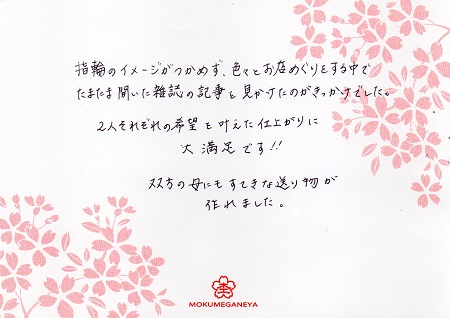 指輪のイメージがつかめず、色々とお店めぐりをする中で
たまたま開いた雑誌の記事を見かけたのがきっかけでした。
2人それぞれの希望を叶えた仕上がりに
大満足です!!
双方の母にもすてきな送り物が
作れました。
MOKUMEGANEYA